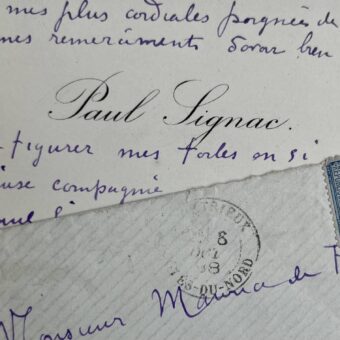 mes plus cordiales poignées de
mes remerciments d'avoir bien
Paul Signac.
figurer mes toiles en si
compagnie
RIEUX
6
OCT
98
ES-DU-NORD
Monsieur Maurice de